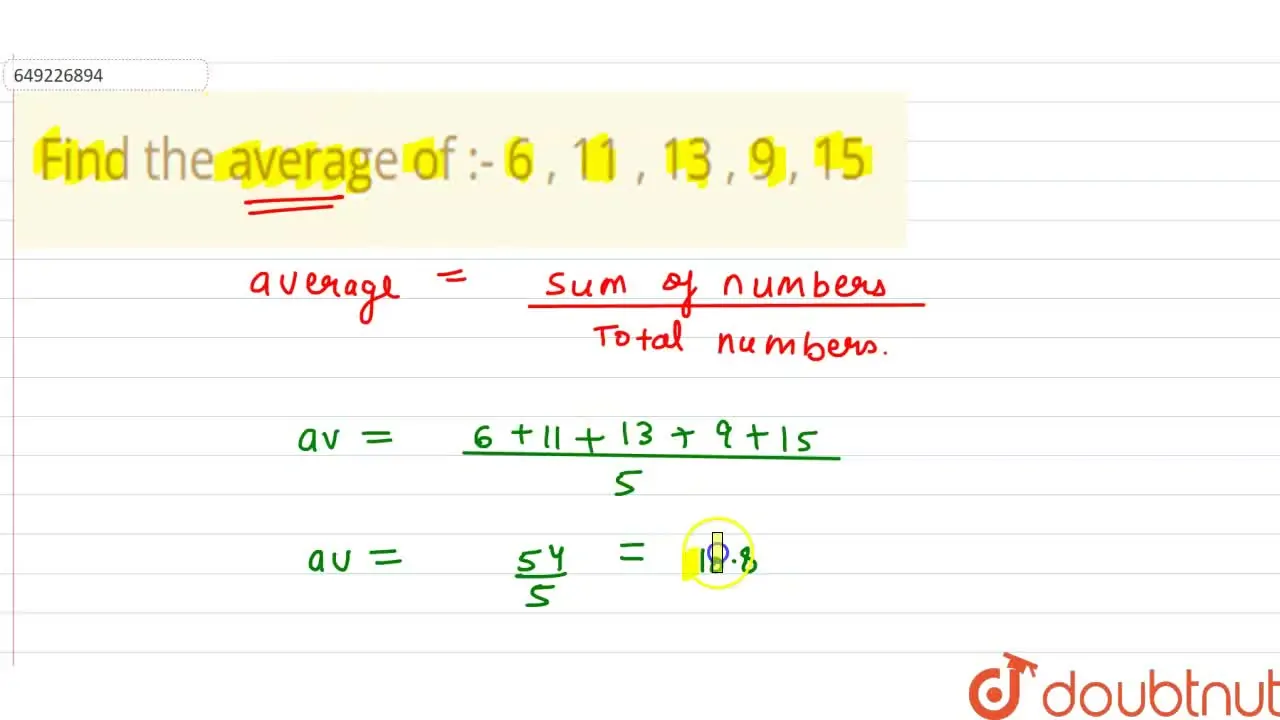 649226894
Find the average of :- 6 , 11 , 13 , 9 , 15
average = sum of numbers
Total numbers.
av = 6 + 11 + 13 + 9 + 15
5
av = 54 =
5
doubtnut